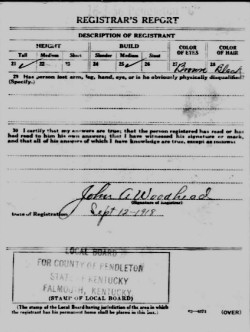 REGISTRAR'S REPORT
DESCRIPTION OF REGISTRANT
HEIGHT BUILD COLOR OF EYES COLOR OF HAIR
Tall Medium Short Slender Medium Stout
21 22 23 24 25 26 27 Brown 28 Black
29 Has person lost arm, leg, hand, eye, or is he obviously physically disqualified?
(Specify.)
30 I certify that my answers are true; that the person registered has read or has
had read to him his own answers; that I have witnessed his signature or mark,
and that all of his answers of which I have knowledge are true, except as follows:
John A Woodhead
(Signature of Registrar)
Date of Registration Sept 12-1918
LOCAL BOARD
FOR COUNTY OF PENDLETON
STATE OF KENTUCKY
FALMOUTH, KENTUCKY
(STAMP OF LOCAL BOARD)
(The stamp of the Local Board having jurisdiction of the area in which
the registrant has his permanent home shall be placed in this box.)
(OVER)